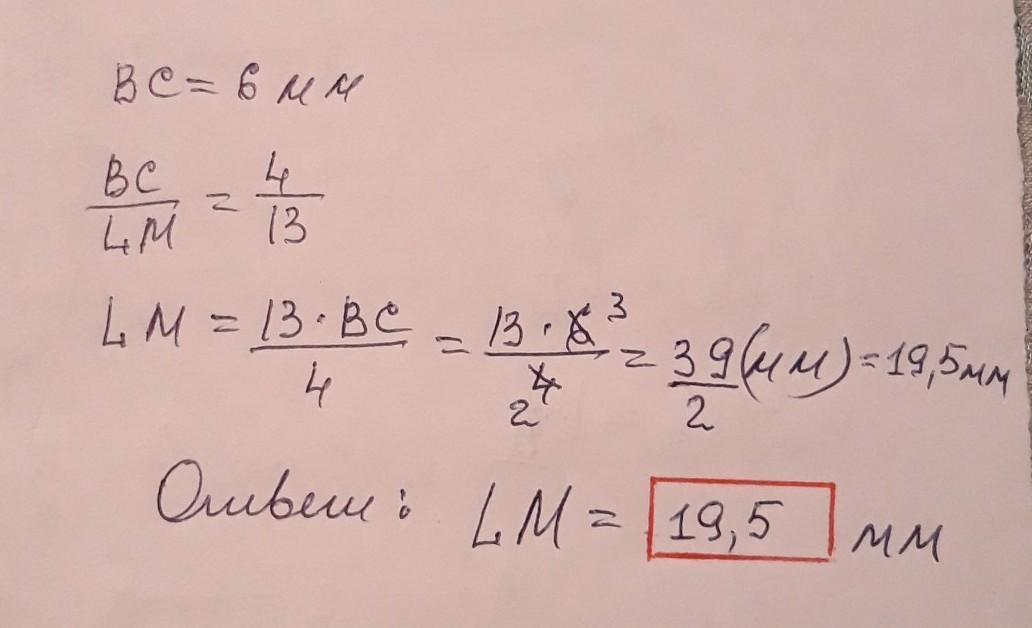 BC = 6 мм
BC/LM = 4/13
LM = 13·BC/4 = 13·6 3/4 2 = 39/2 (мм) = 19,5 мм
Ответ: LM = 19,5 мм